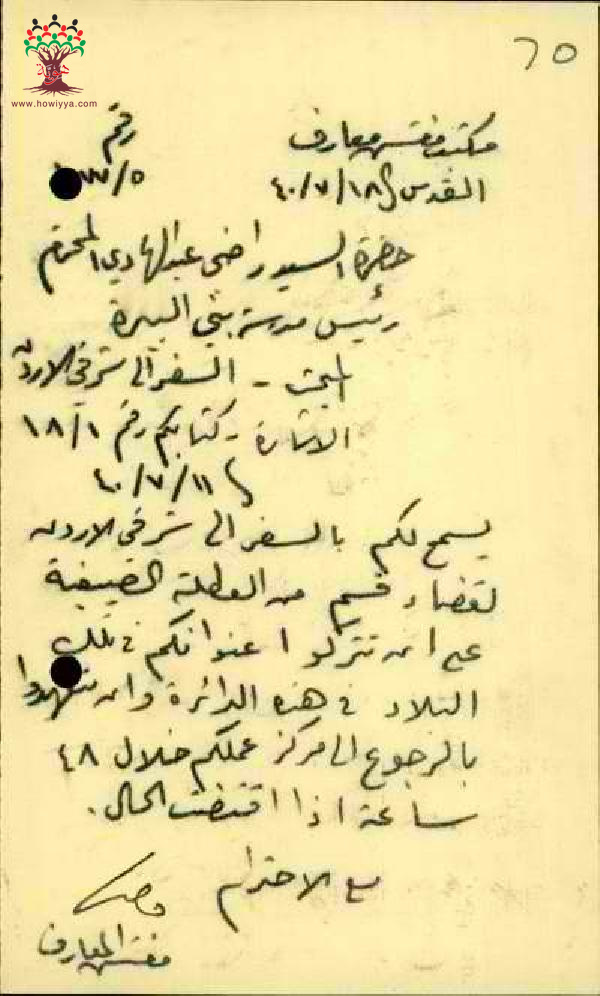 www.howiyya.com
٦٥
مكتب مفتش معارف
رقم
القدس ١٨/٧/٤٠
/٥
حضرة السيد راضي عبد الهادي المحترم
رئيس مدرسة بني البيرة
البحث - السفر الى شرقي الاردن
الاشارة - كتابكم رقم ١٨/١
١١/٧/٤٠
يسمح لكم بالسفر الى شرقي الاردن
لقضاء قسم من العطلة الصيفية
على ان تتركوا عنوانكم في تلك
البلاد في هذه الدائرة وان تتعهدوا
بالرجوع الى مركز عملكم خلال ٤٨
ساعة اذا اقتضت الحال.
مع الاحترام
مفتش المعارف